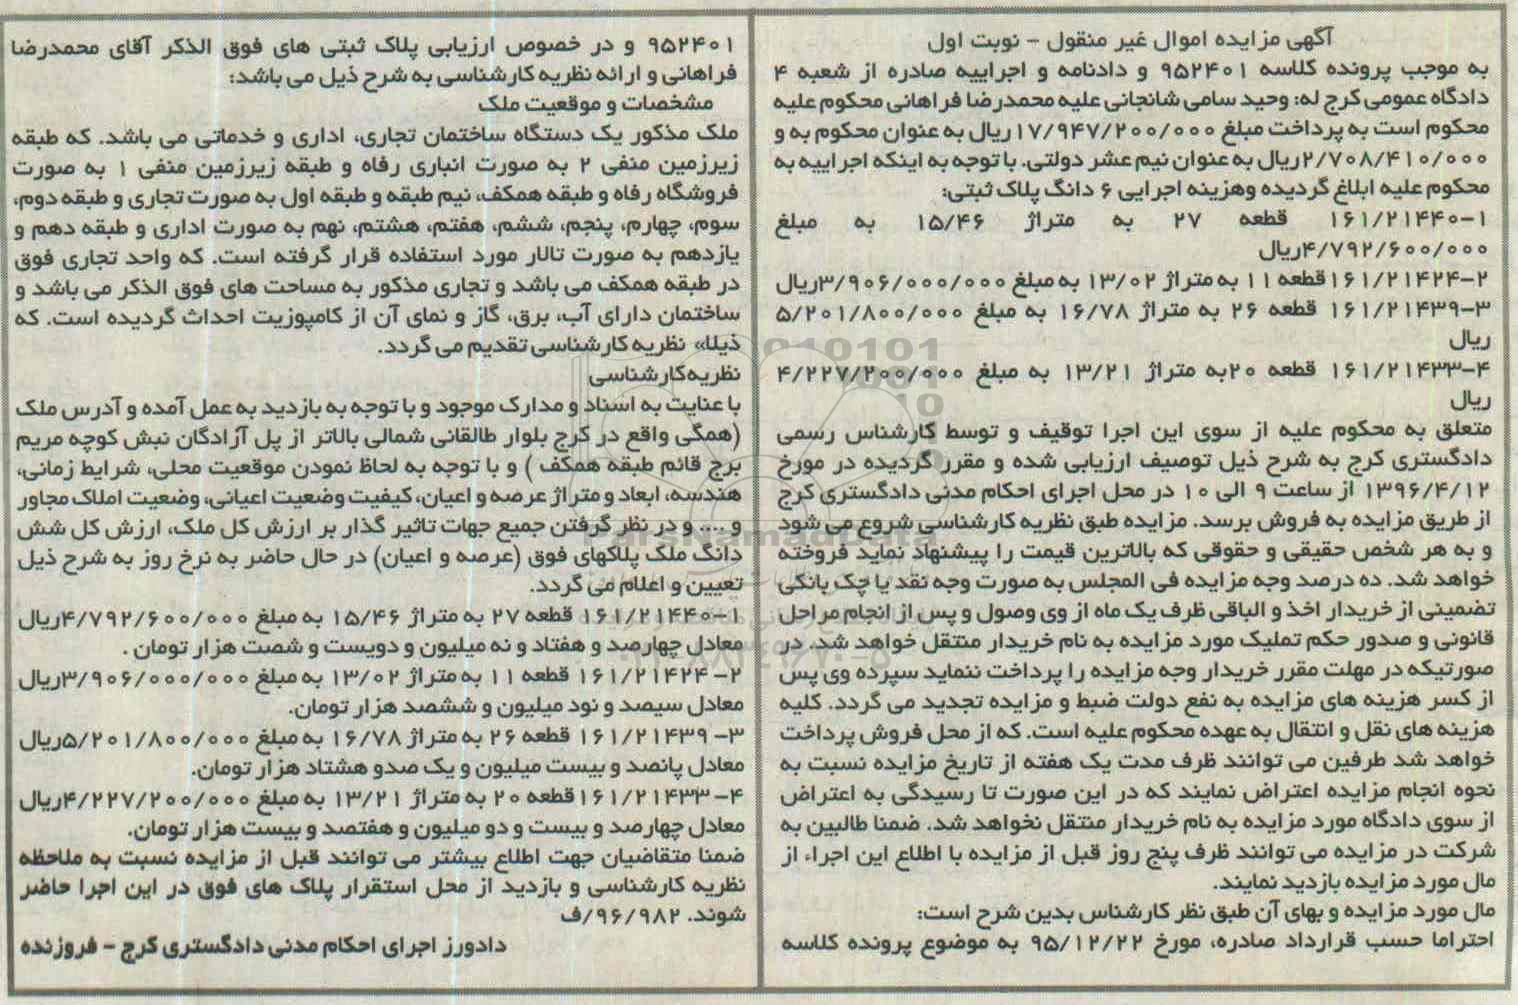 آگهی مزایده اموال غیر منقول - نوبت اول
به موجب پرونده کلاسه ۹۵۲۴۰۱ و دادنامه و اجراییه صادره از شعبه ۴
دادگاه عمومی کرج له: وحید سامی شانجانی علیه محمدرضا فراهانی محکوم علیه
محکوم است به پرداخت مبلغ ۱۷/۹۴۷/۲۰۰/۰۰۰ ریال به عنوان محکوم به و
۲/۷۰۸/۴۱۰/۰۰۰ریال به عنوان نیم عشر دولتی. با توجه به اینکه اجراییه به
محکوم علیه ابلاغ گردیده وهزینه اجرایی ۶ دانگ پلاک ثبتی:
۱-۱۶۱/۲۱۴۴۰ قطعه ۲۷ به متراژ ۱۵/۴۶ به مبلغ
۴/۷۹۲/۶۰۰/۰۰۰ریال
۲-۱۶۱/۲۱۴۲۴ قطعه ۱۱ به متراژ ۱۳/۰۲ به مبلغ ۳/۹۰۶/۰۰۰/۰۰۰ریال
۳-۱۶۱/۲۱۴۳۹ قطعه ۲۶ به متراژ ۱۶/۷۸ به مبلغ ۵/۲۰۱/۸۰۰/۰۰۰
ریال
۴-۱۶۱/۲۱۴۳۳ قطعه ۲۰به متراژ ۱۳/۲۱ به مبلغ ۴/۲۲۷/۲۰۰/۰۰۰
ریال
متعلق به محکوم علیه از سوی این اجرا توقیف و توسط کارشناس رسمی
دادگستری کرج به شرح ذیل توصیف ارزیابی شده و مقرر گردیده در مورخ
۱۳۹۶/۴/۱۲ از ساعت ۹ الی ۱۰ در محل اجرای احکام مدنی دادگستری کرج
از طریق مزایده به فروش برسد. مزایده طبق نظریه کارشناسی شروع می شود
و به هر شخص حقیقی و حقوقی که بالاترین قیمت را پیشنهاد نماید فروخته
خواهد شد. ده درصد وجه مزایده فی المجلس به صورت وجه نقد یا چک بانکی
تضمینی از خریدار اخذ و الباقی ظرف یک ماه از وی وصول و پس از انجام مراحل
قانونی و صدور حکم تملیک مورد مزایده به نام خریدار منتقل خواهد شد. در
صورتیکه در مهلت مقرر خریدار وجه مزایده را پرداخت ننماید سپرده وی پس
از کسر هزینه های مزایده به نفع دولت ضبط و مزایده تجدید می گردد. کلیه
هزینه های نقل و انتقال به عهده محکوم علیه است. که از محل فروش پرداخت
خواهد شد طرفین می توانند ظرف مدت یک هفته از تاریخ مزایده نسبت به
نحوه انجام مزایده اعتراض نمایند که در این صورت تا رسیدگی به اعتراض
از سوی دادگاه مورد مزایده به نام خریدار منتقل نخواهد شد. ضمنا طالبین به
شرکت در مزایده می توانند ظرف پنج روز قبل از مزایده با اطلاع این اجراء از
مال مورد مزایده بازدید نمایند.
مال مورد مزایده و بهای آن طبق نظر کارشناس بدین شرح است:
احتراما حسب قرارداد صادره، مورخ ۹۵/۱۲/۲۲ به موضوع پرونده کلاسه
۹۵۲۴۰۱ و در خصوص ارزیابی پلاک ثبتی های فوق الذکر آقای محمدرضا
فراهانی و ارائه نظریه کارشناسی به شرح ذیل می باشد:
مشخصات و موقعیت ملک
ملک مذکور یک دستگاه ساختمان تجاری، اداری و خدماتی می باشد. که طبقه
زیرزمین منفی ۲ به صورت انباری رفاه و طبقه زیرزمین منفی ۱ به صورت
فروشگاه رفاه و طبقه همکف، نیم طبقه و طبقه اول به صورت تجاری و طبقه دوم،
سوم، چهارم، پنجم، ششم، هفتم، هشتم، نهم به صورت اداری و طبقه دهم و
یازدهم به صورت تالار مورد استفاده قرار گرفته است. که واحد تجاری فوق
در طبقه همکف می باشد و تجاری مذکور به مساحت های فوق الذکر می باشد و
ساختمان دارای آب، برق، گاز و نمای آن از کامپوزیت احداث گردیده است. که
ذیلا» نظریه کارشناسی تقدیم می گردد.
نظریه‌کارشناسی
با عنایت به اسناد و مدارک موجود و با توجه به بازدید به عمل آمده و آدرس ملک
(همگی واقع در کرج بلوار طالقانی شمالی بالاتر از پل آزادگان نبش کوچه مریم
برج قائم طبقه همکف ) و با توجه به لحاظ نمودن موقعیت محلی، شرایط زمانی،
هندسه، ابعاد و متراژ عرصه و اعیان، کیفیت وضعیت اعیانی، وضعیت املاک مجاور
و .... و در نظر گرفتن جمیع جهات تاثیر گذار بر ارزش کل ملک، ارزش کل شش
دانگ ملک پلاکهای فوق (عرصه و اعیان) در حال حاضر به نرخ روز به شرح ذیل
تعیین و اعلام می گردد.
۱-۱۶۱/۲۱۴۴۰ قطعه ۲۷ به متراژ ۱۵/۴۶ به مبلغ ۴/۷۹۲/۶۰۰/۰۰۰ریال
معادل چهارصد و هفتاد و نه میلیون و دویست و شصت هزار تومان .
۲- ۱۶۱/۲۱۴۲۴ قطعه ۱۱ به متراژ ۱۳/۰۲ به مبلغ ۳/۹۰۶/۰۰۰/۰۰۰ریال
معادل سیصد و نود میلیون و ششصد هزار تومان.
۳- ۱۶۱/۲۱۴۳۹ قطعه ۲۶ به متراژ ۱۶/۷۸ به مبلغ ۵/۲۰۱/۸۰۰/۰۰۰ریال
معادل پانصد و بیست میلیون و یک صدو هشتاد هزار تومان.
۴- ۱۶۱/۲۱۴۳۳ قطعه ۲۰ به متراژ ۱۳/۲۱ به مبلغ ۴/۲۲۷/۲۰۰/۰۰۰ریال
معادل چهارصد و بیست و دو میلیون و هفتصد و بیست هزار تومان.
ضمنا متقاضیان جهت اطلاع بیشتر می توانند قبل از مزایده نسبت به ملاحظه
نظریه کارشناسی و بازدید از محل استقرار پلاک های فوق در این اجرا حاضر
شوند. ۹۶/۹۸۲/ف
دادورز اجرای احکام مدنی دادگستری کرج - فروزنده
ParsNamadData